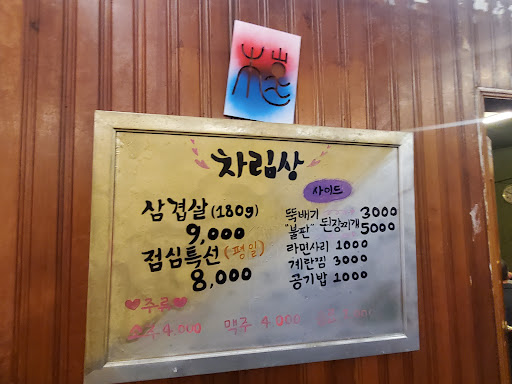 차림상
삼겹살 (180g)
9,000
점심특선 (평일)
8,000
사이드
뚝배기 3000
"불판" 된장찌개 5000
라면사리 1000
계란찜 3000
공기밥 1000
♥주류♥
소주 4.000 맥주 4.000